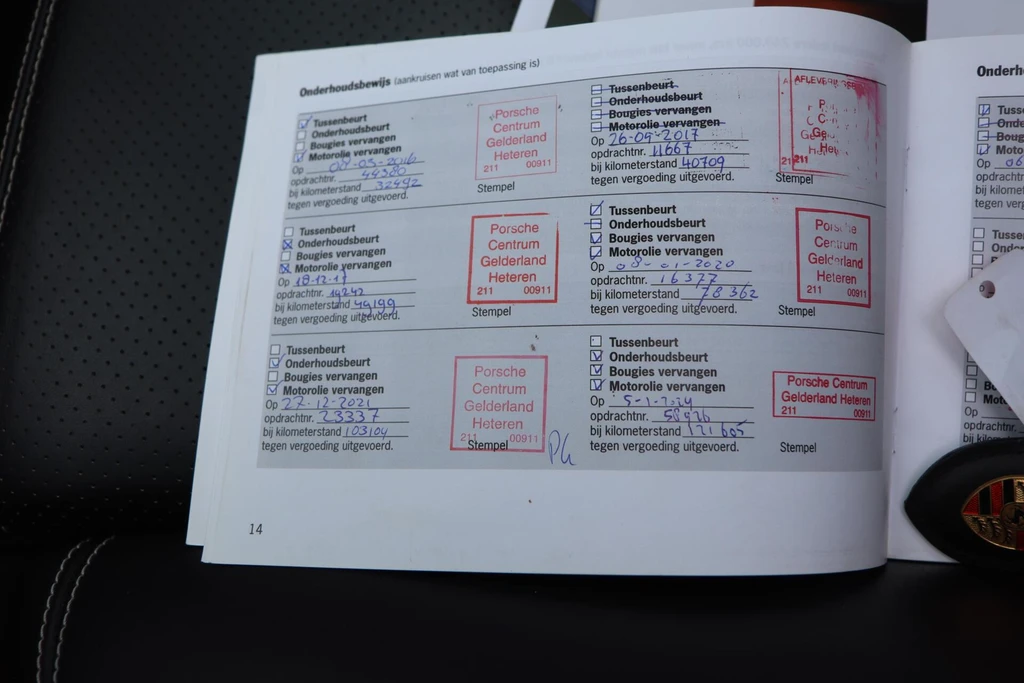 Onderhoudsbewijs (aankruisen wat van toepassing is)
Tussenbeurt
Onderhoudsbeurt
Bougies vervangen
Motorolie vervangen
Op 04-03-2016
opdrachtnr. 44380
bij kilometerstand 32492
tegen vergoeding uitgevoerd.
Porsche
Centrum
Gelderland
Heteren
211 00911
Stempel
Tussenbeurt
Onderhoudsbeurt
Bougies vervangen
Motorolie vervangen
Op 26-09-2017
opdrachtnr. 11667
bij kilometerstand 40709
tegen vergoeding uitgevoerd.
Stempel
Tussenbeurt
Onderhoudsbeurt
Bougies vervangen
Motorolie vervangen
Op 18-12-17
opdrachtnr. 19242
bij kilometerstand 49199
tegen vergoeding uitgevoerd.
Porsche
Centrum
Gelderland
Heteren
211 00911
Stempel
Tussenbeurt
Onderhoudsbeurt
Bougies vervangen
Motorolie vervangen
Op 08-01-2020
opdrachtnr. 16377
bij kilometerstand 78362
tegen vergoeding uitgevoerd.
Porsche
Centrum
Gelderland
Heteren
211 00911
Stempel
Tussenbeurt
Onderhoudsbeurt
Bougies vervangen
Motorolie vervangen
Op 27-12-2021
opdrachtnr. 23337
bij kilometerstand 103104
tegen vergoeding uitgevoerd.
Porsche
Centrum
Gelderland
Heteren
211 00911
Stempel
Tussenbeurt
Onderhoudsbeurt
Bougies vervangen
Motorolie vervangen
Op 5-1-2024
opdrachtnr. 58976
bij kilometerstand 121605
tegen vergoeding uitgevoerd.
Porsche Centrum
Gelderland Heteren
211 00911
Stempel
14